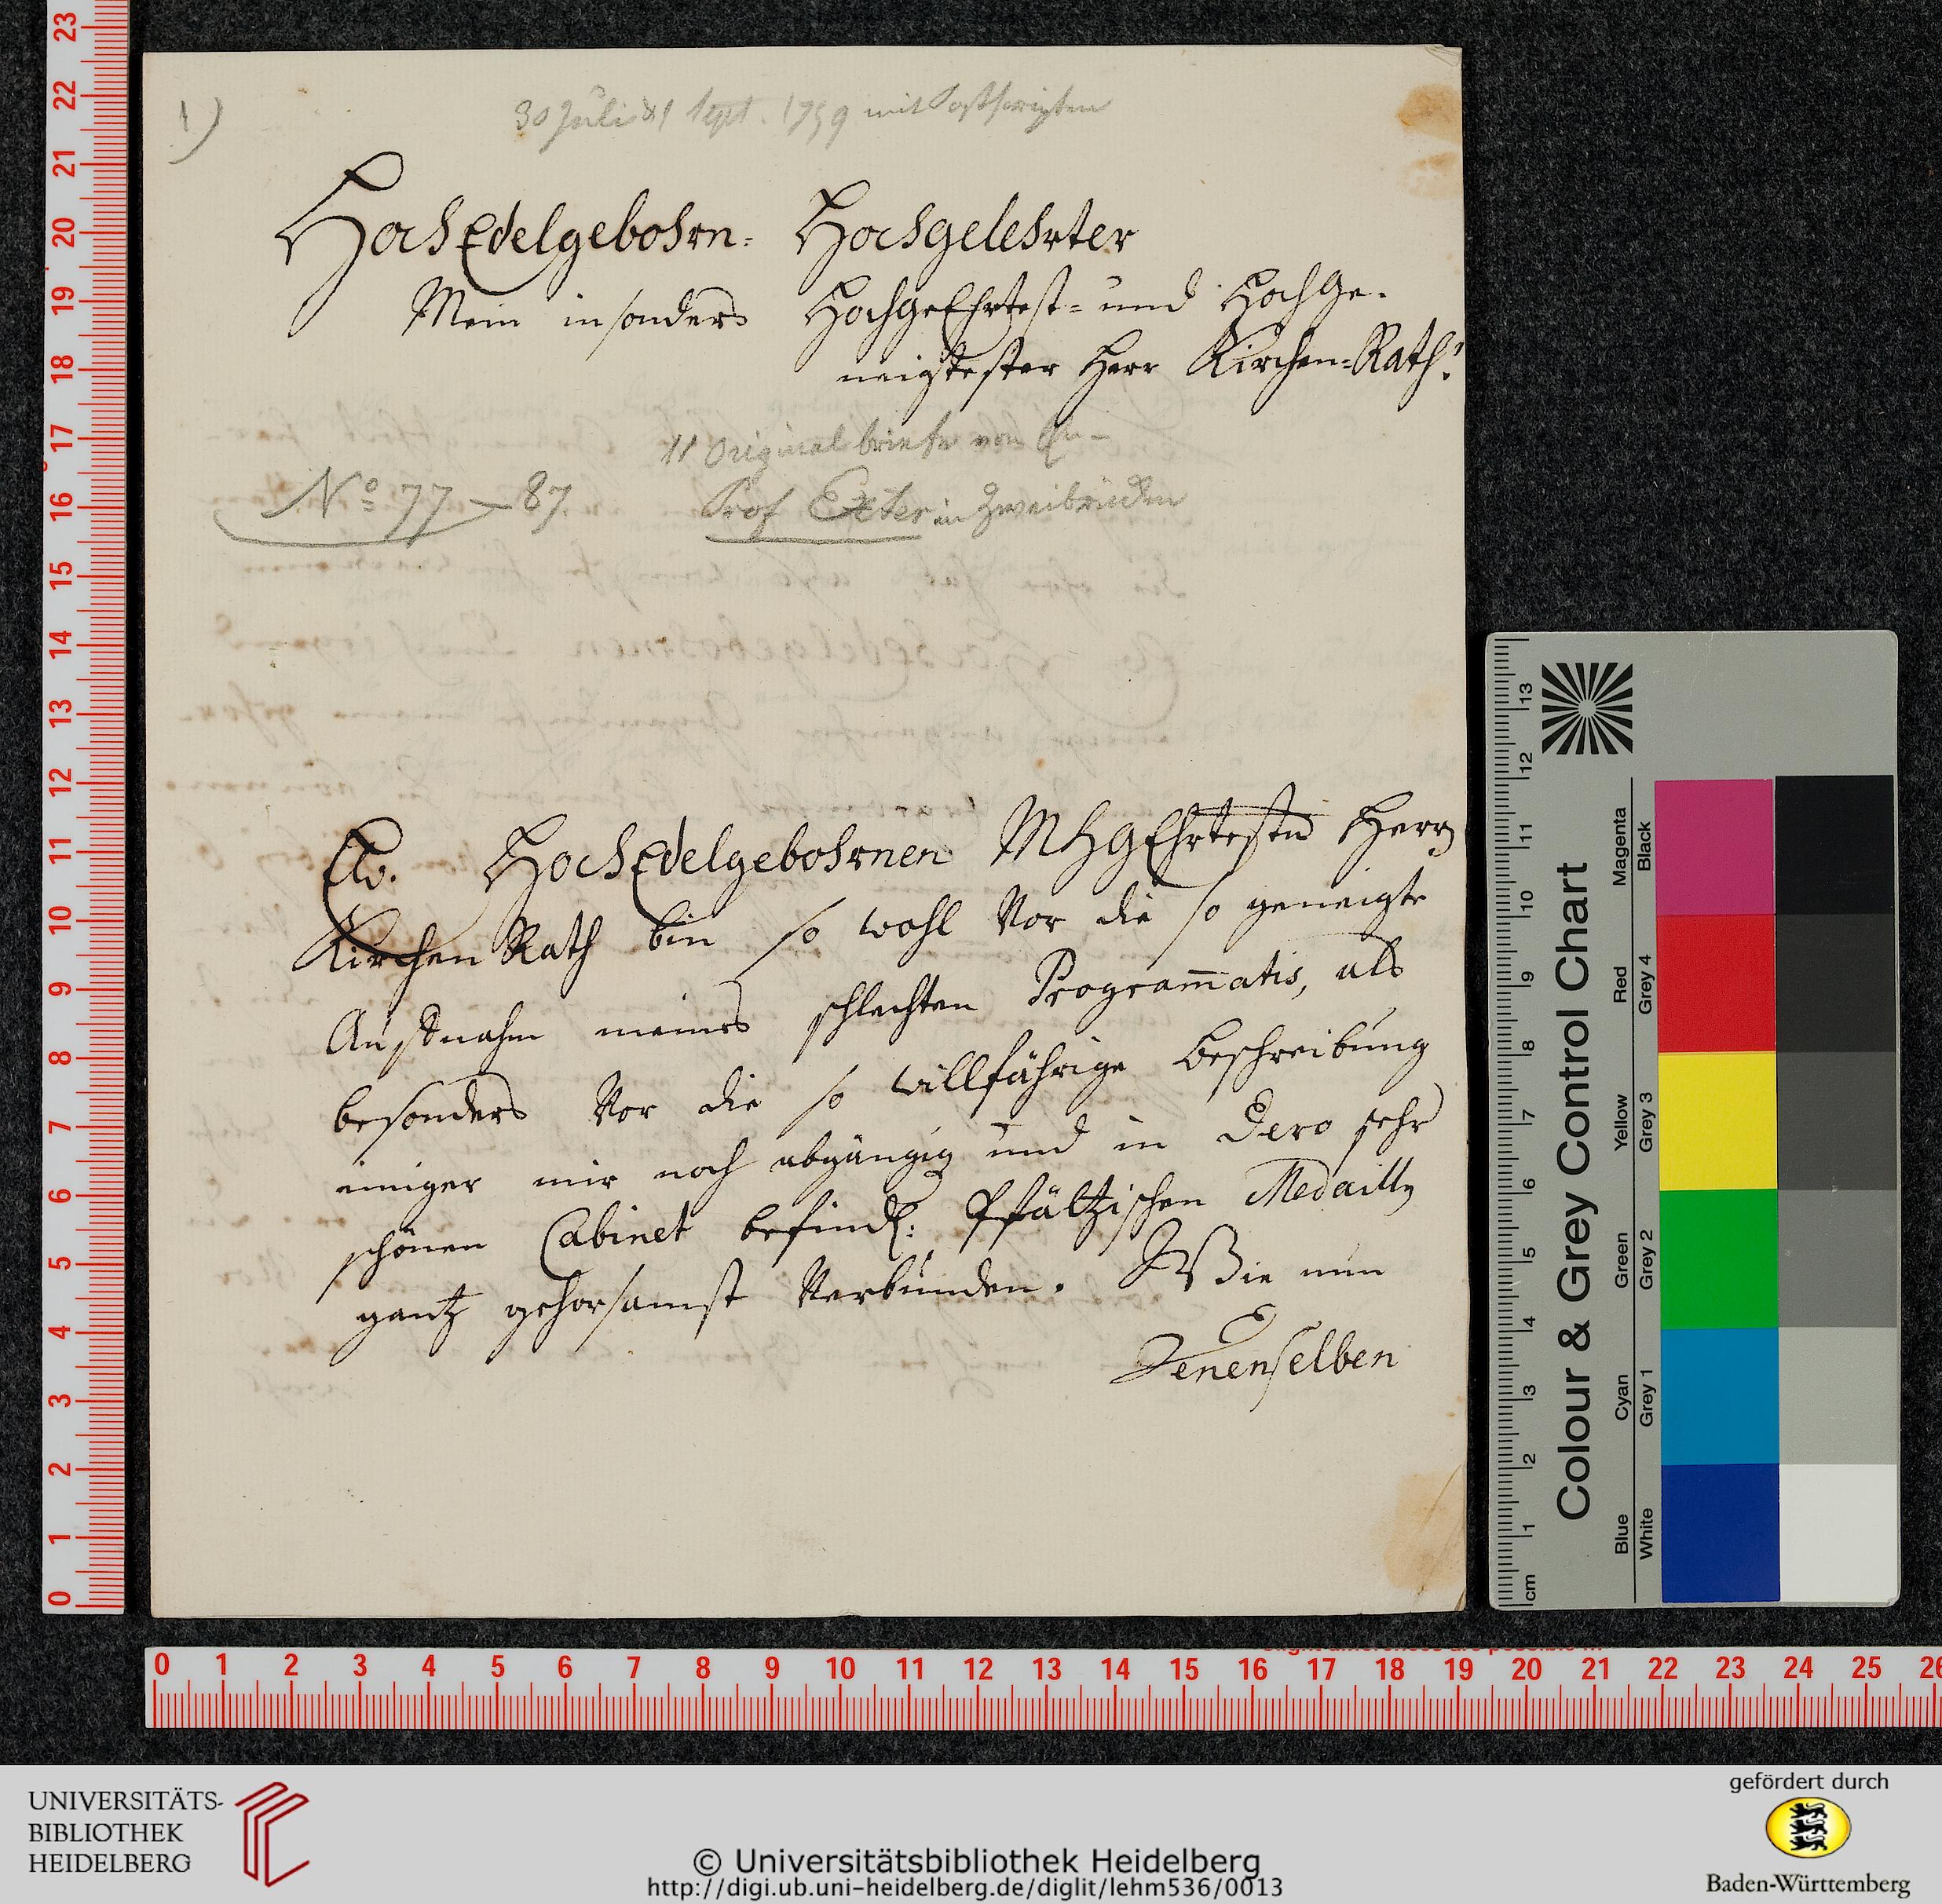 1)
30 Juli & 1 Sept. 1759 mit Postscripten
HochEdelgebohrn- Hochgelehrter
Mein insonders HochgeEhrtest- und Hochge-
neigtester Herr Kirchen-Rath!
11 Original briefe von
No 77 - 87. Prof Exter in Zweibrücken
Ew. HochEdelgebohrnen MHgEhrtesten Herrn
Kirchen Rath bin so wohl vor die so geneigte
Aufnahm meines schlechten Programmatis, als
besonders vor die so willfährige Beschreibung
einiger mir noch abgängig und in Dero sehr
schönen Cabinet befindl: Pfältzischen Medaillen
gantz gehorsamst verbunden. Wie nun
Denenselben
UNIVERSITÄTS-
BIBLIOTHEK
HEIDELBERG
© Universitätsbibliothek Heidelberg
http://digi.ub.uni-heidelberg.de/diglit/lehm536/0013
gefördert durch
Baden-Württemberg
Colour & Grey Control Chart
Blue Cyan Green Yellow Red Magenta
White Grey 1 Grey 2 Grey 3 Grey 4 Black
cm 1 2 3 4 5 6 7 8 9 10 11 12 13
0 1 2 3 4 5 6 7 8 9 10 11 12 13 14 15 16 17 18 19 20 21 22 23
0 1 2 3 4 5 6 7 8 9 10 11 12 13 14 15 16 17 18 19 20 21 22 23 24 25 26